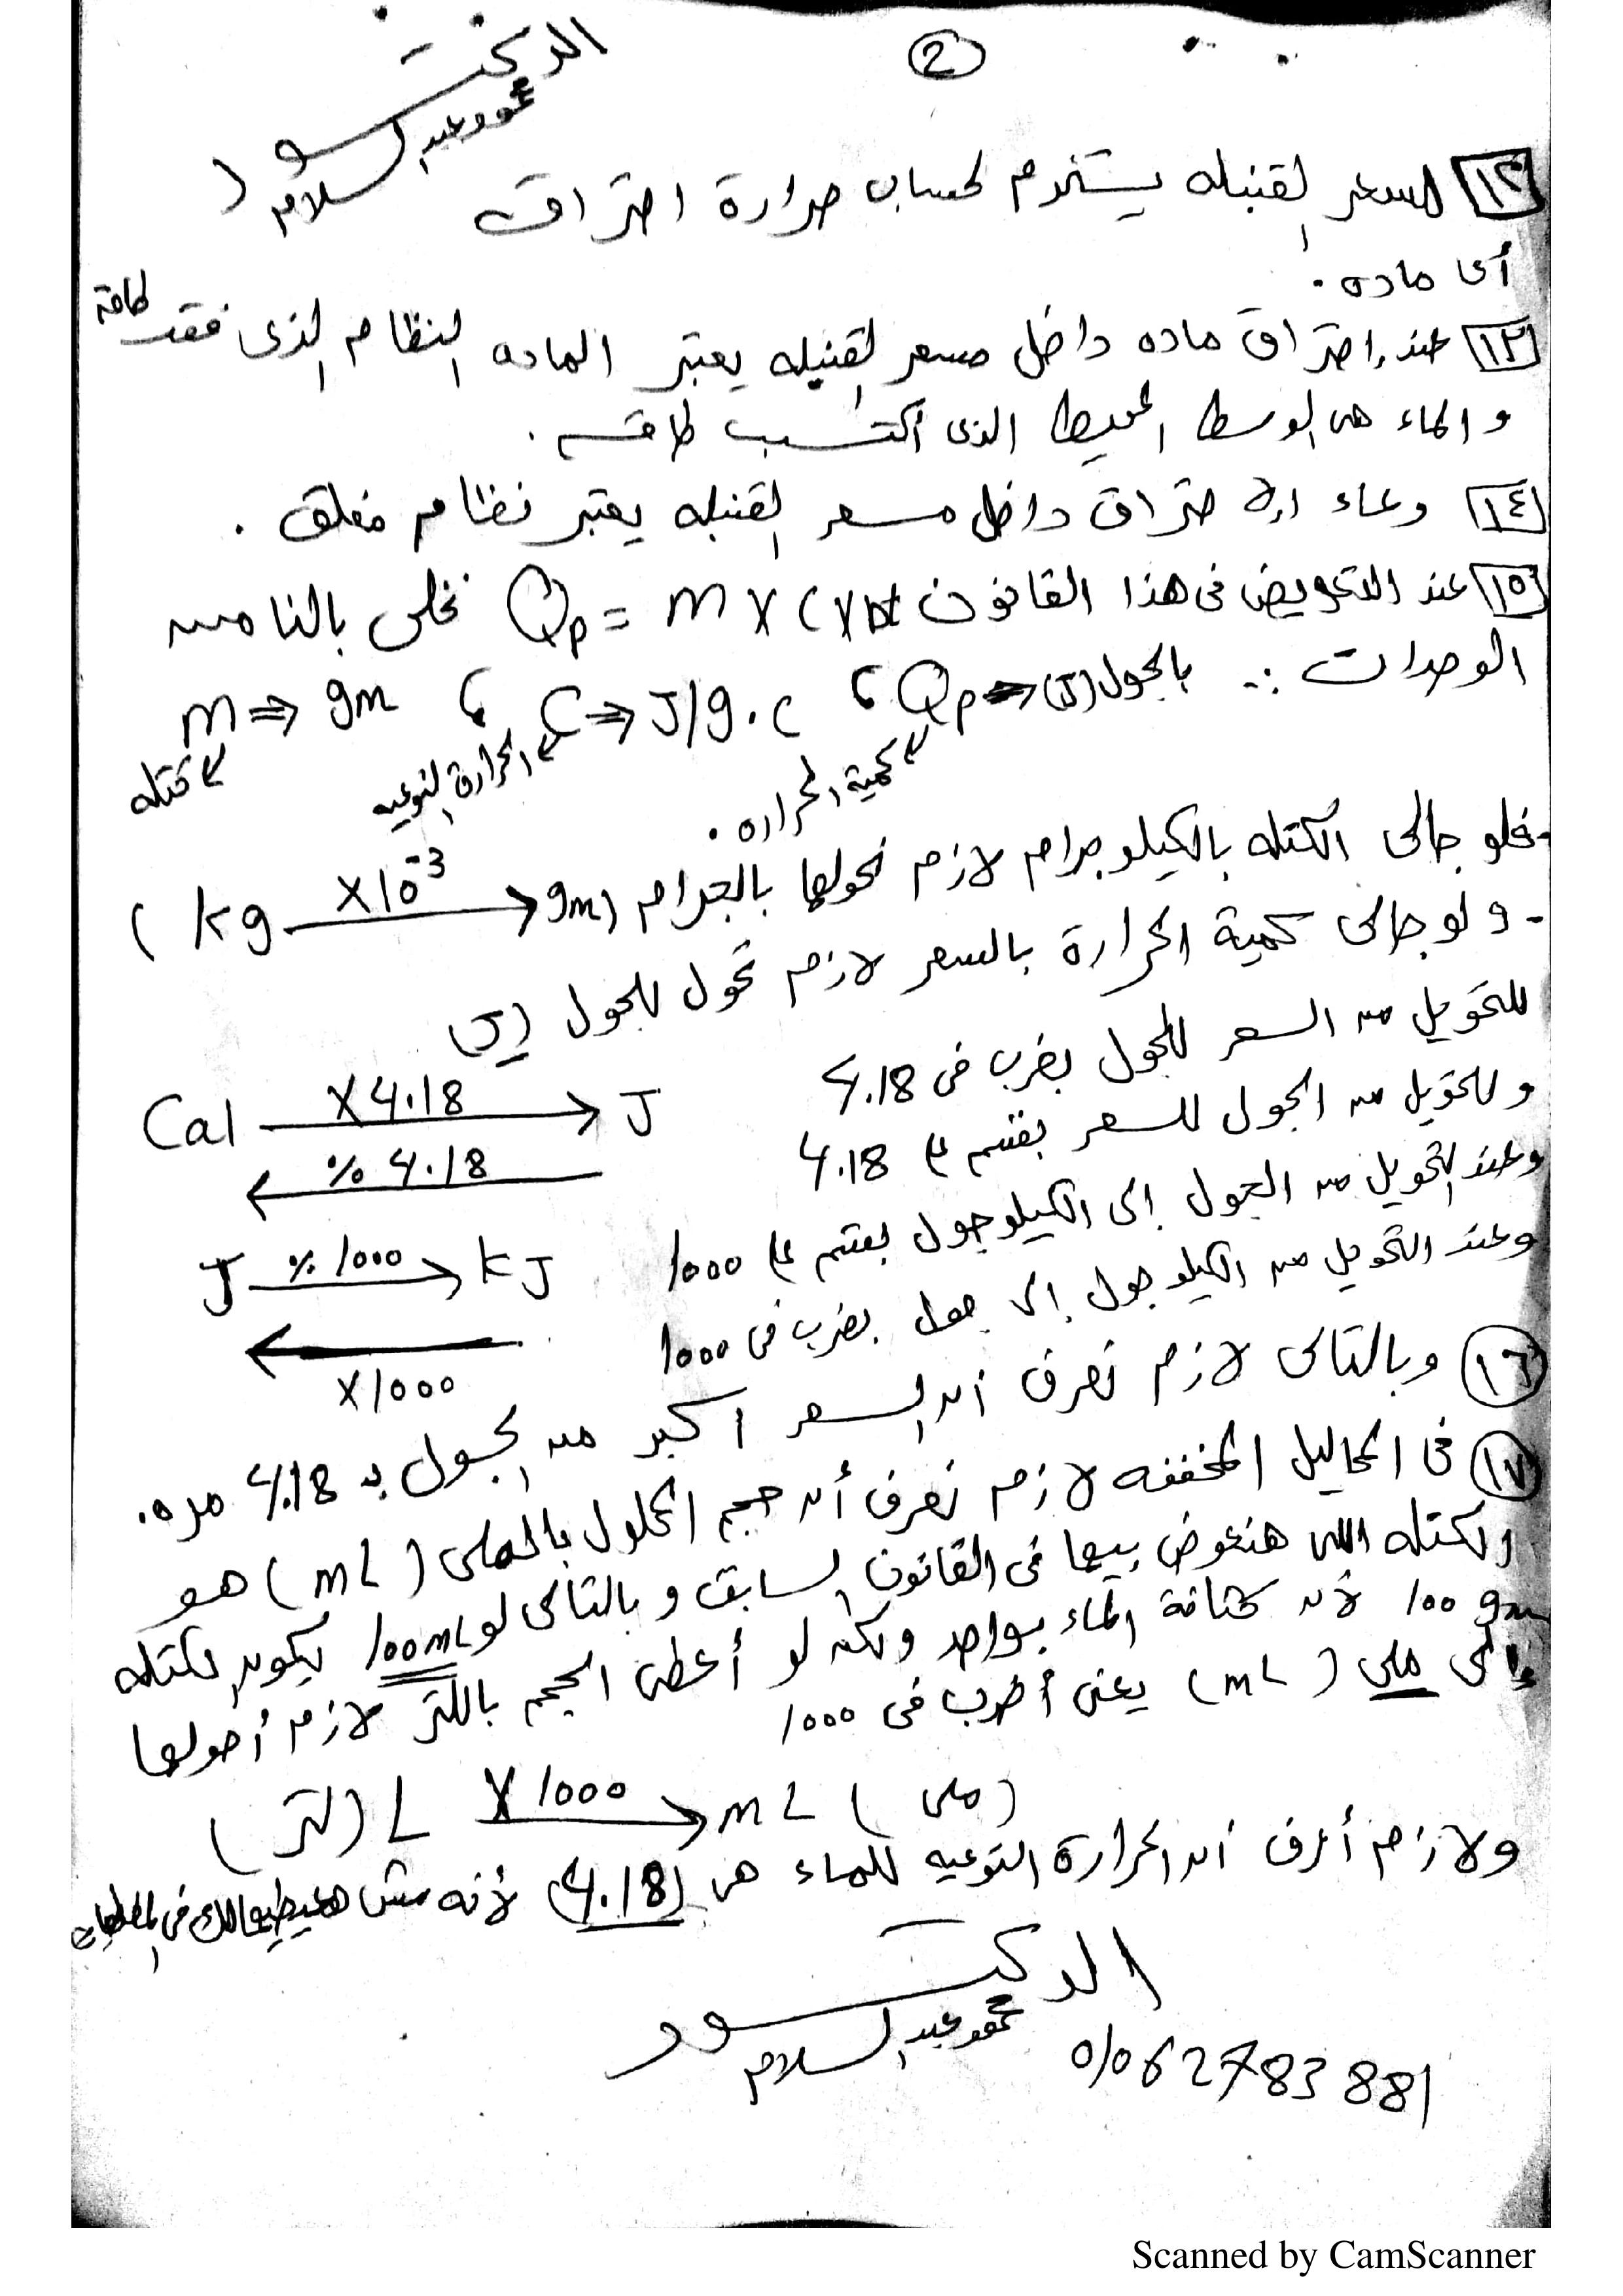 2
الدكتور
محمود عبد السلام
١٢ المسعر القنبله يستخدم لحساب حرارة احتراق
أى ماده .
١٣ عند إحتراق ماده داخل مسعر القنبله يعتبر الماده النظام الذى فقد طاقة
و الماء هى الوسط المحيط الذى أكتسب طاقه .
١٤ وعاء الاحتراق داخل مسعر القنبله يعتبر نظام مغلق .
١٥ عند التعويض فى هذا القانون Qp = m x C x Δt نخلى بالنا من
الوحدات :. بالجول (J) ⇐ Qp ، C ⇒ J/g.c ، m ⇒ gm
كمية الحراره . الحرارة النوعيه كتله
- فلو جالى الكتله بالكيلو جرام لازم نحولها بالجرام (gm ← x10⁻³ kg )
- ولو جالى كمية الحرارة بالسعر لازم نحول للجول (J)
للتحويل من السعر للجول بضرب فى 4.18
Cal x4.18 → J
وللتحويل من الجول للسعر بقسم على 4.18
← % 4.18
وعند التحويل من الجول إلى الكيلوجول بقسم على 1000
J % 1000 → kJ
وعند التحويل من الكيلوجول إلى جول بضرب فى 1000
← x1000
١٦ وبالتالى لازم نعرف أن السعر أكبر من الجول بـ 4.18 مره .
١٧ فى المحاليل المخففه لازم نعرف أن حجم المحلول بالملى (mL) هو
الكتله اللى هنعوض بيها فى القانون السابق و بالتالى لو 100mL يكون الكتله
100 gm لأن كثافة الماء بواحد ولكن لو أعطى الحجم باللتر لازم أحولها
إلى ملى (mL) يعنى أضرب فى 1000
(لتر) L x1000 → mL (ملى)
ولازم أعرف أن الحرارة النوعيه للماء هى (4.18) لأنه مش هيعطيهالك فى المعطيات
الدكتور
محمود عبد السلام
01062783881
Scanned by CamScanner